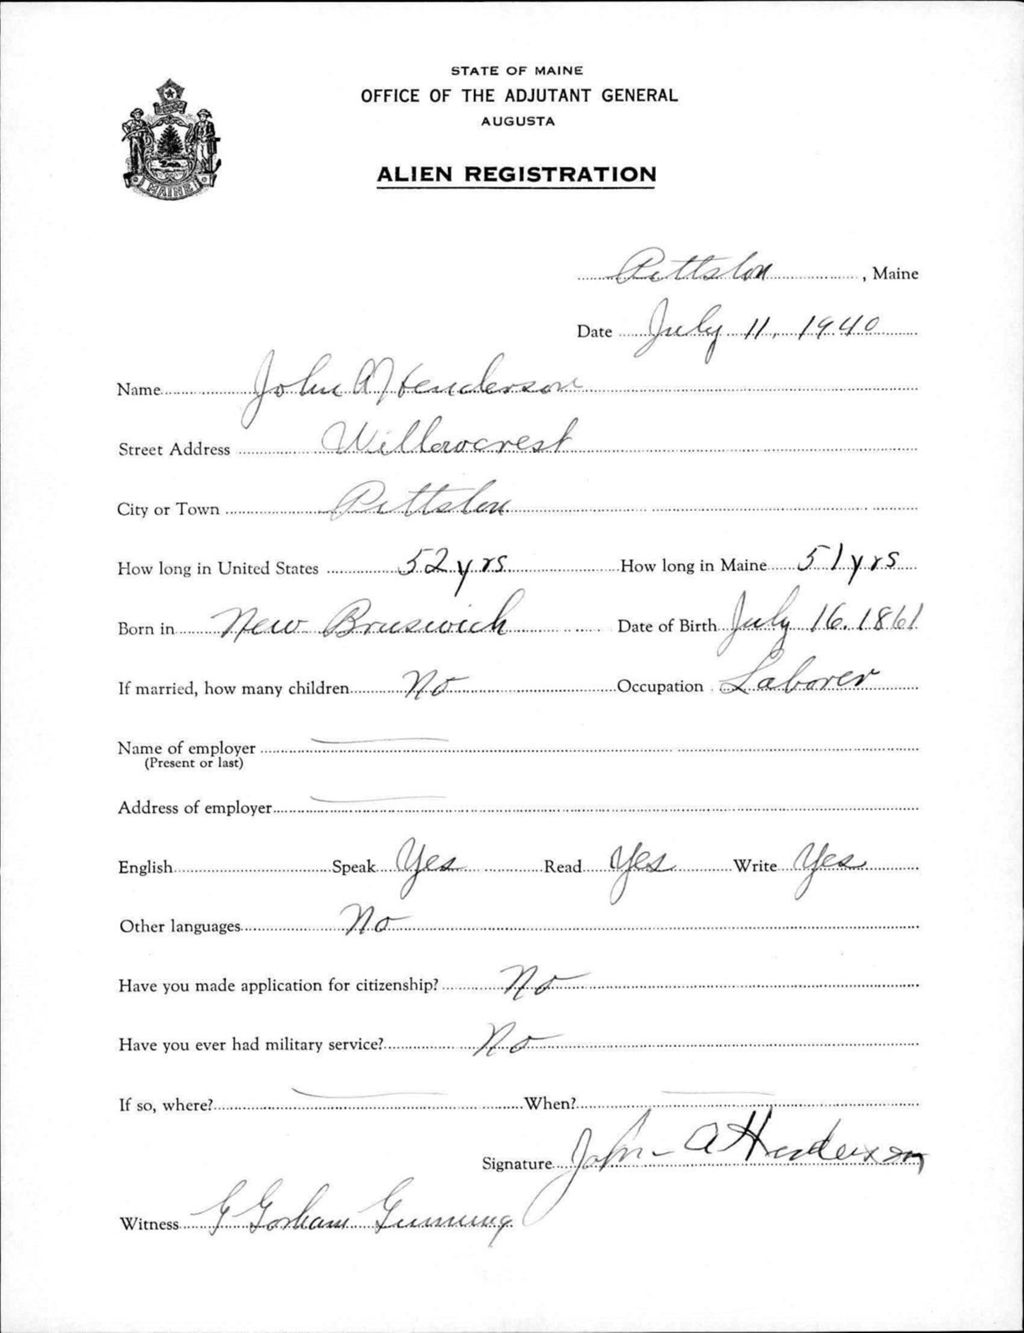 STATE OF MAINE
OFFICE OF THE ADJUTANT GENERAL
AUGUSTA
ALIEN REGISTRATION
MAINE
Pittston, Maine
Date July 11, 1940
Name John A Henderson
Street Address Willowcrest
City or Town Pittston
How long in United States 52 yrs. How long in Maine 51 yrs
Born in New Bruswick Date of Birth July 16. 1861
If married, how many children No Occupation Laborer
Name of employer
(Present or last)
Address of employer
English Speak Yes Read Yes Write Yes
Other languages No
Have you made application for citizenship? No
Have you ever had military service? No
If so, where? When?
Signature John A Henderson
Witness G Gorham Gunning